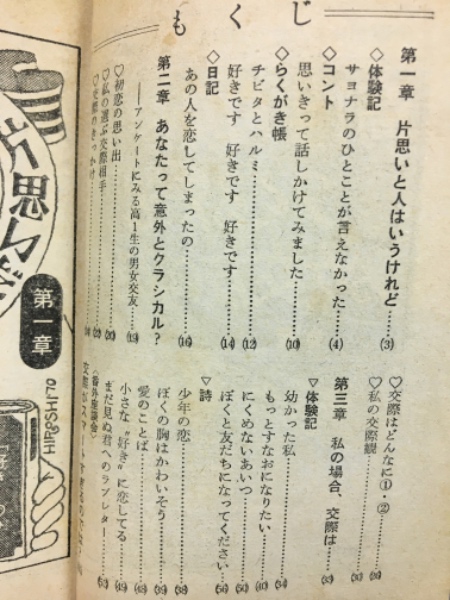 もくじ
第一章 片思いと人はいうけれど……(3)
◇体験記
サヨナラのひとことが言えなかった……(4)
◇コント
思いきって話しかけてみました……(10)
◇らくがき帳
チビタとハルミ……(12)
好きです 好きです 好きです……(14)
◇日記
あの人を恋してしまったの……(16)
第二章 あなたって意外とクラシカル?
――アンケートにみる高1生の男女交友……(19)
♡初恋の思い出……(20)
♡私の選ぶ交際相手
♡交際のきっかけ
♡交際はどんなに①・②
♡私の交際観
第三章 私の場合、交際は
▽体験記
幼かった私
もっとすなおになりたい
にくめないあいつ
ぼくと友だちになってください
▽詩
少年の恋
ぼくの胸はかわいそう
愛のことば
小さな“好き”に恋してる
まだ見ぬ君へのラブレター
〈番外座談会〉
片思い
第一章